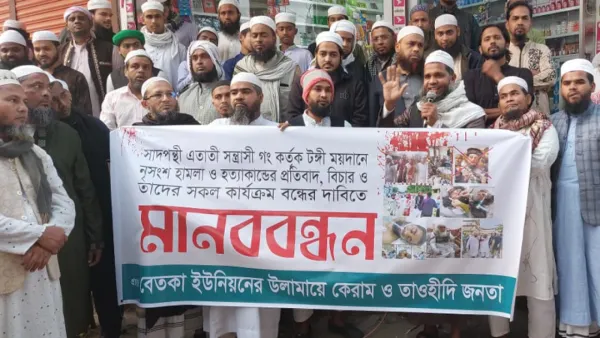 সাদপন্থী এতাতী সন্ত্রাসী গং কর্তৃক টঙ্গী ময়দানে
নৃসংশ হামলা ও হত্যাকান্ডের প্রতিবাদ, বিচার ও
তাদের সকল কার্যক্রম বন্ধের দাবিতে
মানববন্ধন
বেতকা ইউনিয়নের উলামায়ে কেরাম ও তাওহীদি জনতা